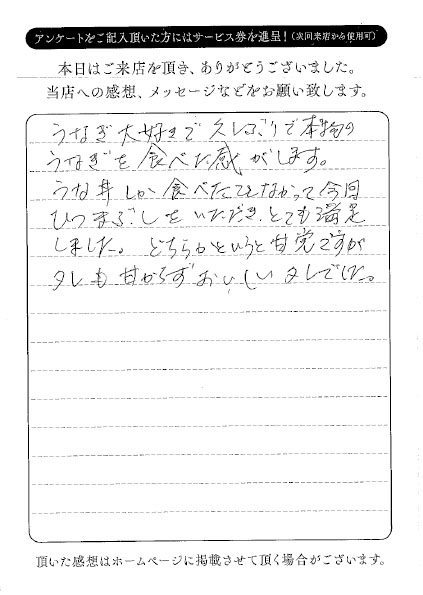 アンケートをご記入頂いた方にはサービス券を進呈！（次回来店から使用可）
本日はご来店を頂き、ありがとうございました。
当店への感想、メッセージなどをお願い致します。
うなぎ大好きで久しぶりで本物の
うなぎを食べた感がします。
うな丼しか食べたことなかって今回
ひつまぶしをいただき、とても満足
しました。どちらかというと甘党ですが
タレも甘からずおいしいタレでした。
頂いた感想はホームページに掲載させて頂く場合がございます。